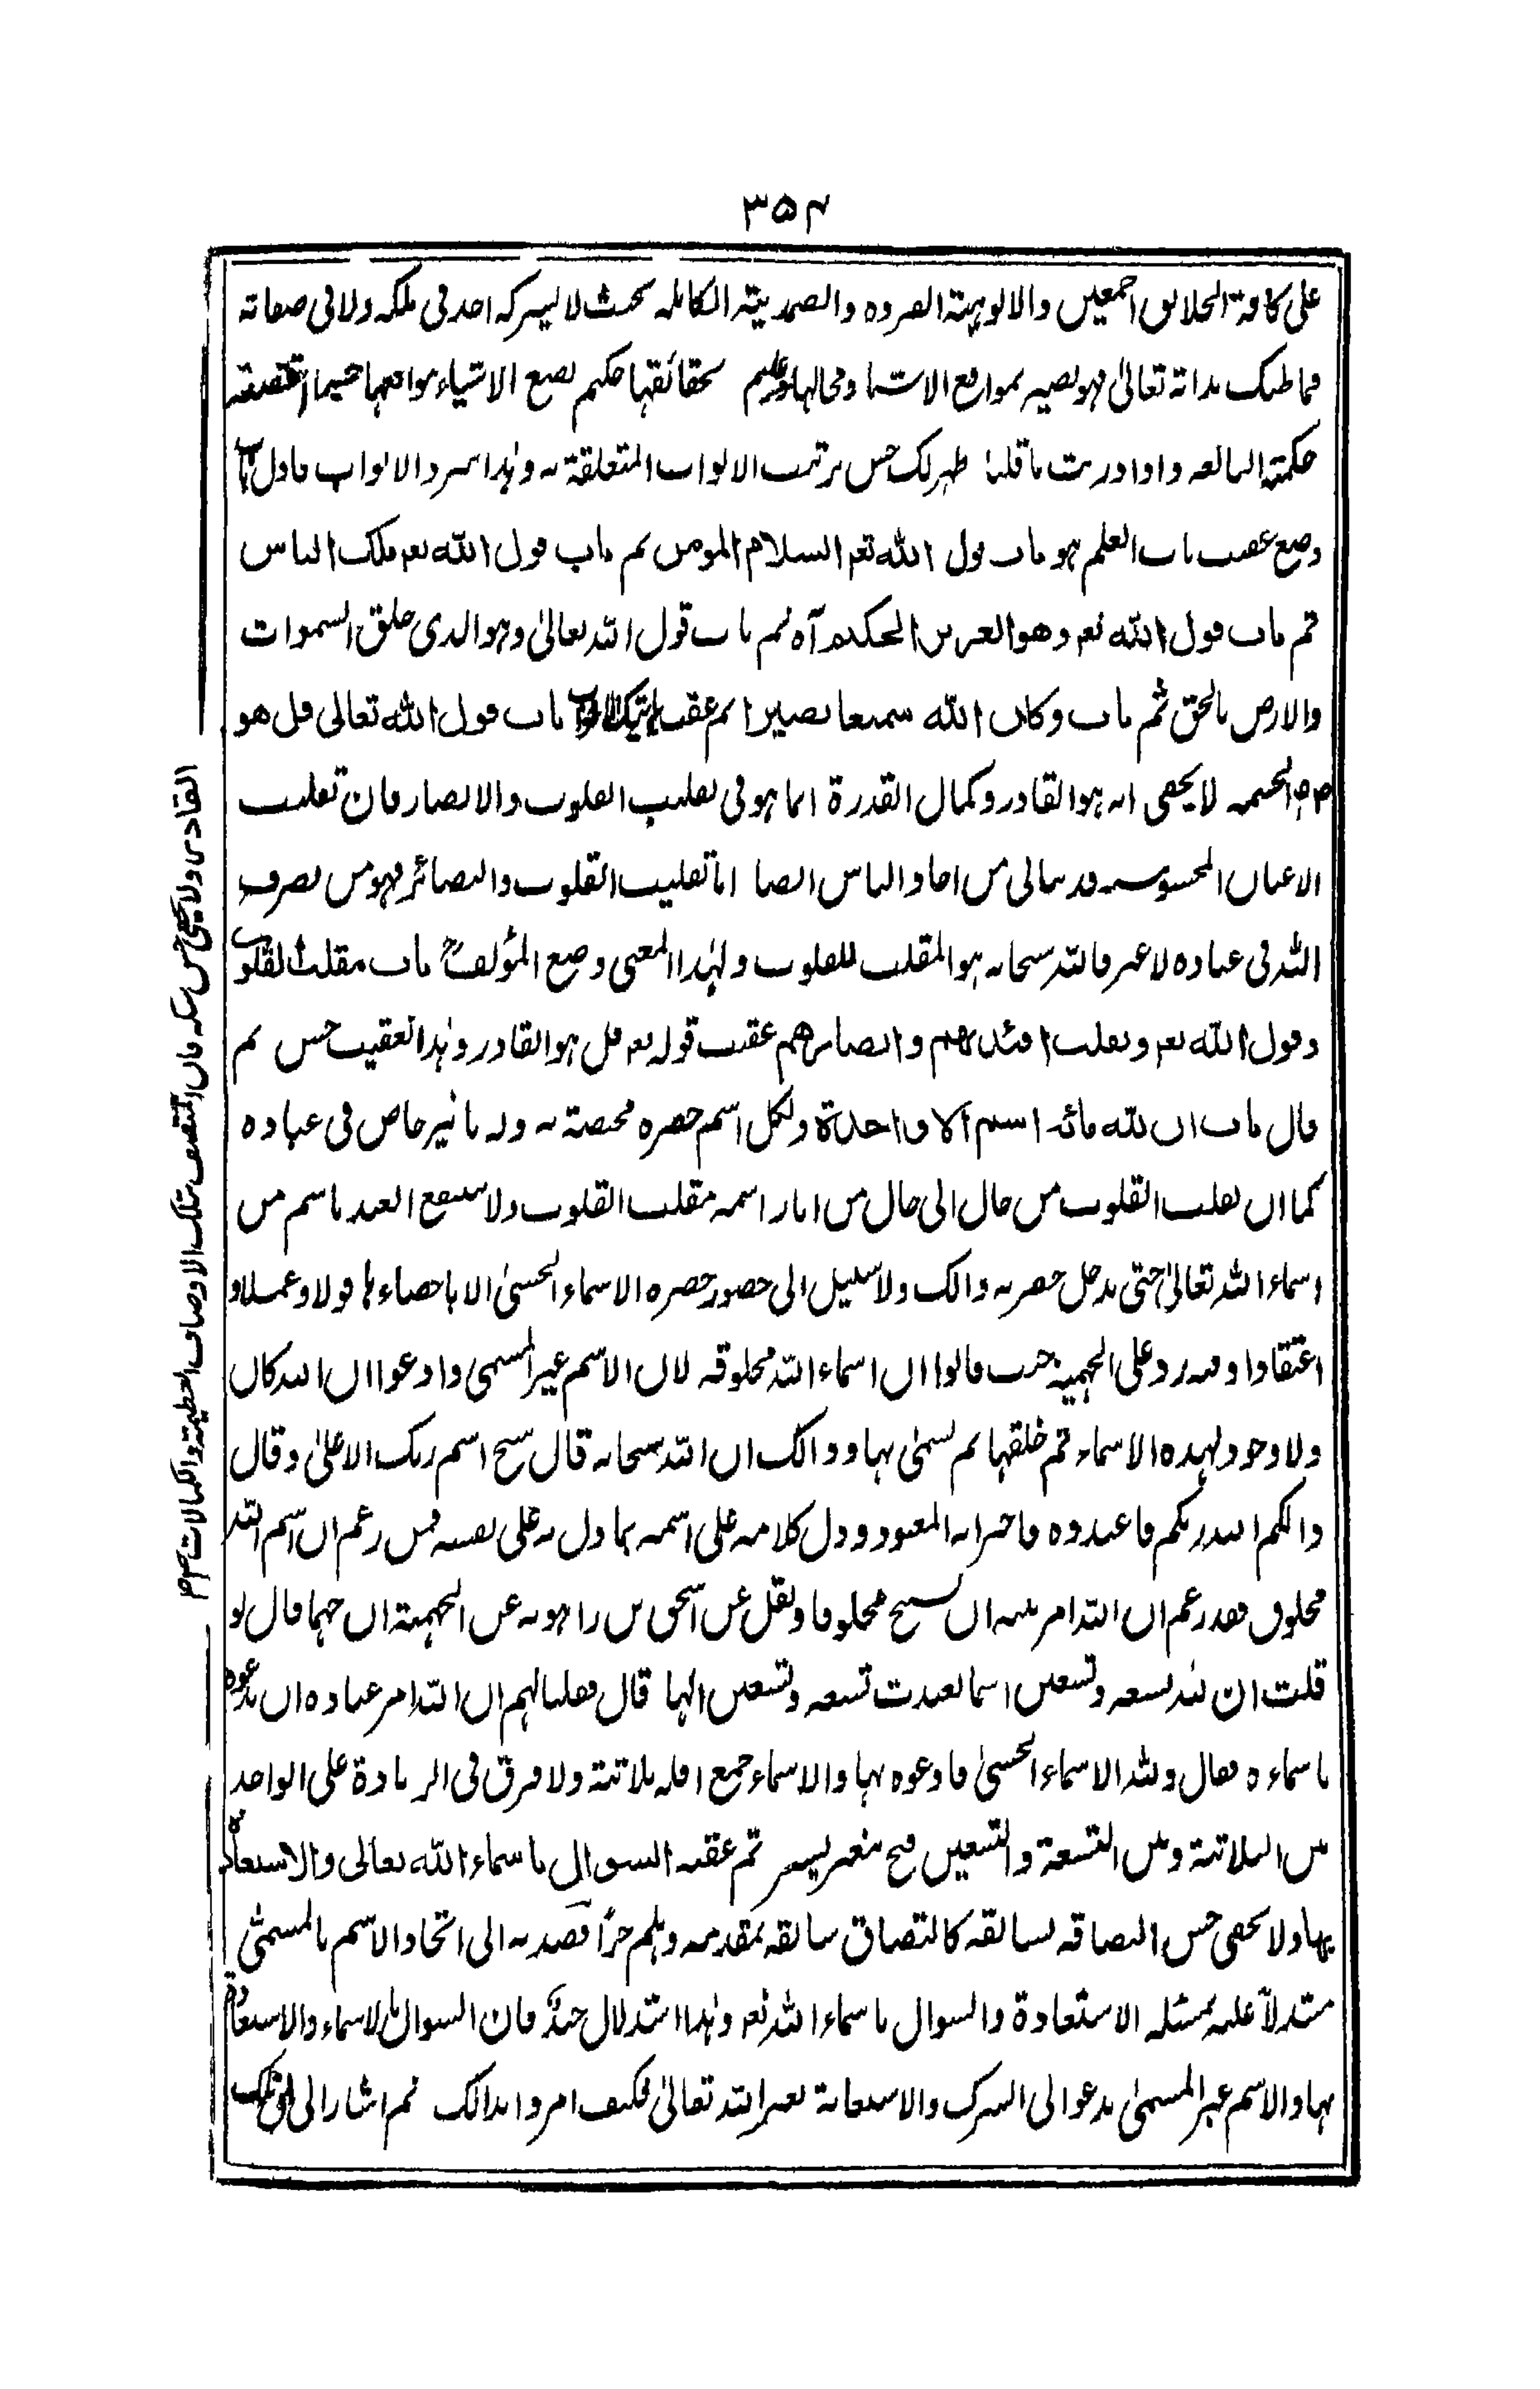 ٣٥٤
على كافة الخلائق اجمعين والالوهية الصرفة والصمدية الكاملة بحيث لا يشركه احد فى ملكه ولا فى صفاته
فما ظنك بذاته تعالىٰ فهو بصير بمواقع الاشياء ومحالها وعليم بحقائقها حكيم يضع الاشياء مواضعها حسبما اقتضته
حكمته البالغة واذا دريت ما قلنا ظهر لك حسن ترتيب الابواب المتعلقة به وهذا سرد الابواب فاول باب
وضع عقيب باب العلم هو باب قول الله تعـ السلام المومن ثم باب قول الله تعـ ملك الناس
ثم باب قول الله تعـ وهو العزيز الحكيم آه ثم باب قول الله تعالىٰ وهو الذى خلق السموات
والارض بالحق ثم باب وكان الله سميعا بصيرا ثم عقب باب قول الله تعالى قل هو
لا يخفى انه هو القادر وكمال القدرة انما هو فى تقليب القلوب والابصار فان تقليب
الاعيان المحسوسة قد يتاتى من احاد الناس ايضا اما تقليب القلوب والبصائر فهو من تصرف
الله فى عباده لا غير فالله سبحانه هو المقلب للقلوب ولهذا المعنى وضع المؤلف باب مقلب القلوب
وقول الله تعـ ونقلب افئدتهم وابصارهم عقيب قوله تعـ قل هو القادر وهذا تعقيب حسن ثم
قال باب ان لله مائة اسم الا واحدة ولكل اسم حضرة مختصة به وله تاثير خاص فى عباده
كما ان تقليب القلوب من حال الى حال من اثار اسمه مقلب القلوب ولا ينتفع العبد باسم من
اسماء الله تعالىٰ حتى يدخل حضرة ذالك ولا سبيل الى حضور حضرة الاسماء الحسنىٰ الا باحصاءها قولا وعملا و
اعتقادا وفيه رد على الجهمية حيث قالوا ان اسماء الله مخلوقة لان الاسم غير المسمى وادعوا ان الله كان
ولا وجود لهذه الاسماء ثم خلقها ثم تسمىٰ بها وذالك ان الله سبحانه قال سبح اسم ربك الاعلىٰ وقال
ذالكم الله ربكم فاعبدوه فاخبر انه المعبود ودل كلامه على اسمه بما دل به على نفسه فمن زعم ان اسم الله
مخلوق فقد زعم ان الله امر نبيه ان يسبح مخلوقا ونقل عن اسحق بن راهويه عن الجهمية ان جهما قال لو
قلت ان لله تسعة وتسعين اسما لعبدت تسعة وتسعين الها قال فقلنا لهم ان الله امر عباده ان يدعوه
باسماءه فقال ولله الاسماء الحسنىٰ فادعوه بها والاسماء جمع اقله ثلاثة ولا فرق فى الزيادة على الواحد
بين الثلاثة وبين التسعة والتسعين ثم عقبه السوال باسماء الله تعالى والاستعاذة
بها ولا يخفى حسن التصاقه لسابقه كالتصاق سابقه بمقدمه وهلم جرا قصد به الى اتحاد الاسم بالمسمىٰ
مستدلا عليه بمسئلة الاستعاذة والسوال باسماء الله تعـ وهذا استدلال جيد فان السوال بالاسماء والاستعاذة
بها والاسم غير المسمىٰ يدعو الى الشرك والاستعانة بغير الله تعالىٰ فكيف امروا بذالك ثم اشار الى
القادر ولا يخفى حسنه فان المتصف بتلك الاوصاف العظيمة والكمالات